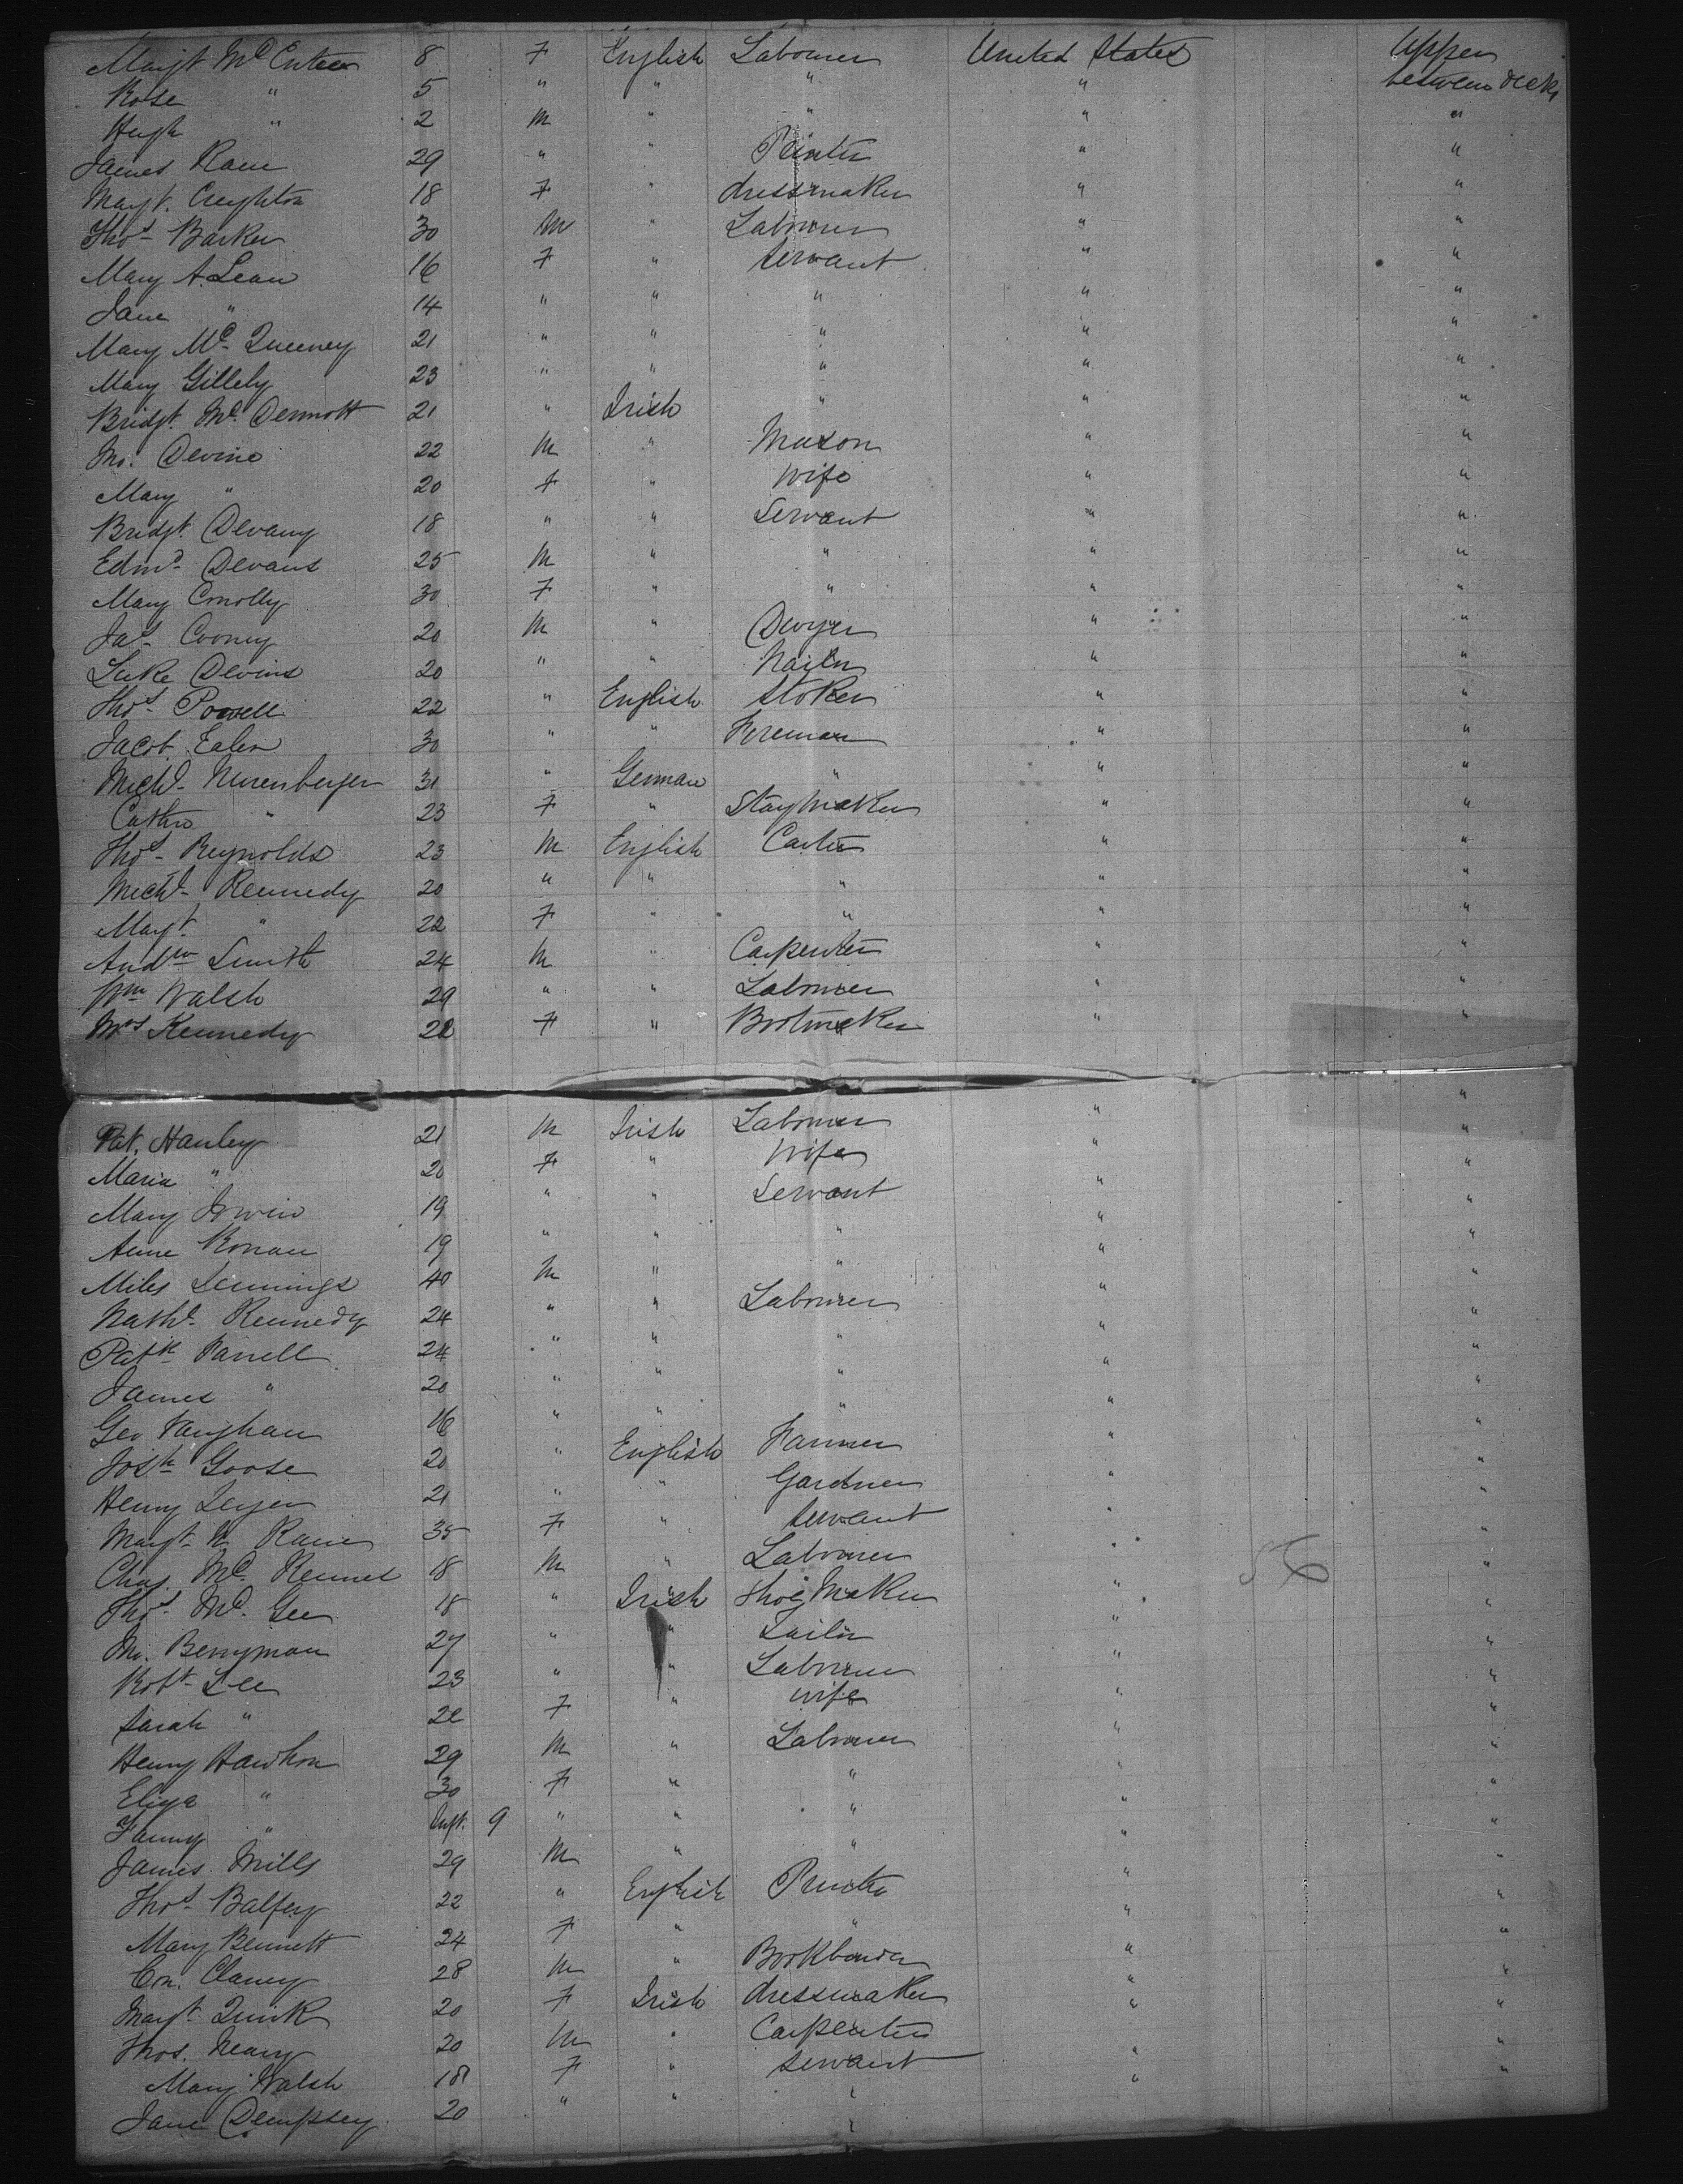 Margt McEnteer 8 F English Labourer United States Upper between decks
Rose " 5 " " " "
Hugh " 2 M " " " "
James Kane 29 " " Painter " "
Margt. Creighton 18 F " dressmaker " "
Thos Barker 30 M " Labourer " "
Mary A. Lean 16 F " Servant " "
Jane " 14 " " " " "
Mary Mc 21 " " " " "
Mary Gillely 23 " " " " "
Bridgt. McDermott 21 " Irish " " "
Jno. Devine 22 M " Mason " "
Mary " 20 F " Wife " "
Bridgt. Devany 18 " " Servant " "
Edmd Devans 25 M " " " "
Mary Conolly 30 F " " " "
Jas Cooney 20 M " " "
Luke Devins 20 " " Nailer " "
Thos Powell 22 " English Stoker " "
Jacob 30 " " Foreman " "
Michl Nurenberger 31 " German " " "
Cathn " 23 F " Stay Maker " "
Thos Reynolds 23 M English Carter " "
Michl Kennedy 20 " " " " "
Margt. " 22 F " " " "
Andrw Smith 24 M " Carpenter " "
Wm Walsh 29 " " Labourer " "
Mrs Kennedy 22 F " Bootmaker " "
Pat. Hanley 21 M Irish Labourer " "
Maria " 20 F " Wife " "
Mary Irwin 19 " " Servant " "
Anne Ronan 19 " " " " "
Miles Jennings 40 M " " " "
Nathl Kennedy 24 " " Labourer " "
Patk Farrell 24 " " " " "
James " 20 " " " " "
Geo Vaughan 16 " " " " "
Josh Goose 20 " English Farmer " "
Henry 21 " " Gardner " "
Margt 35 F " Servant " "
Chas. Mc 18 M " Labourer " "
Thos McGee 18 " Irish Shoe Maker " "
Jno. Berryman 27 " " Tailor " "
Robt Lee 23 " " Labourer " "
Sarah " 22 F " Wife " "
Henry 29 M " Labourer " "
Eliza " 30 F " " " "
Fanny " Inft. 9 " " " " "
James Mills 29 M " " " "
Thos Balfery 22 " English Printer " "
Mary Bennett 24 F " " " "
Con. Clancy 28 M " Bookbinder " "
Margt Quirk 20 F Irish dressmaker " "
Thos. Neary 20 M " Carpenter " "
Mary Walsh 18 F " Servant " "
Jane Dempsey 20 " " "
56